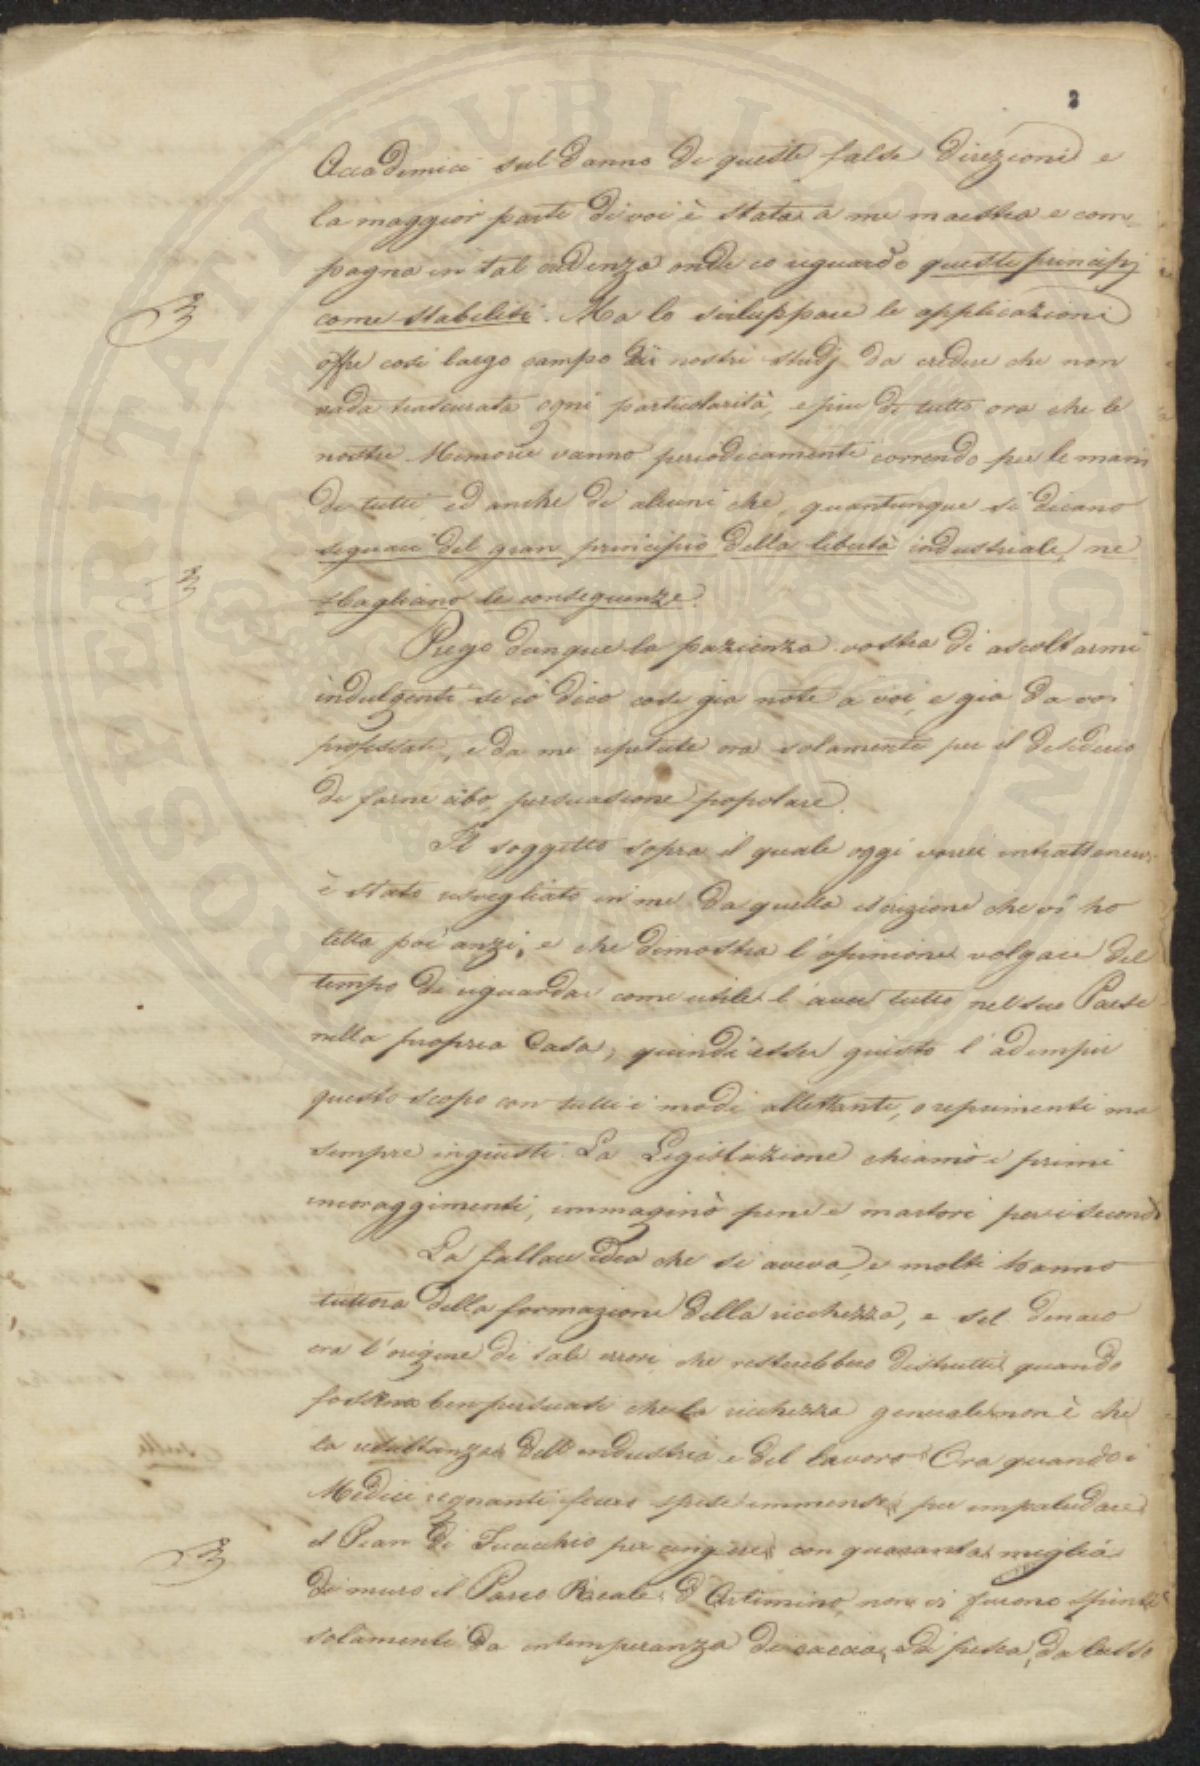 2
Accademici sul danno di queste false direzioni e
la maggior parte di voi è stata a me maestra e com-
pagna in tal credenza onde io riguardo questi principj
come stabiliti. Ma lo sviluppare le applicazioni
offre così largo campo ai nostri studj da credere che non
vada trascurata ogni particolarità, e più di tutto ora che le
nostre Memorie vanno periodicamente correndo per le mani
di tutti ed anche di alcuni che, quantunque si dicano
seguaci del gran principio della libertà industriale, ne
sbagliano le conseguenze.
Prego dunque la pazienza vostra di ascoltarmi
indulgente se io dico cose già note a voi, e già da voi
professate, e da me ripetute ora solamente per il desiderio
di farne cibo, persuasione popolare.
Il soggetto sopra il quale oggi vorrei intrattenervi
è stato risvegliato in me da quella iscrizione che vi ho
letta poi anzi, e che dimostra l'opinione volgare del
tempo di riguardar come utile l'aver tutto nel suo Paese
nella propria Casa, quindi esser giusto l'adempir
questo scopo con tutti i modi allettanti, o reprimenti ma
sempre ingiusti. La Legislazione chiamò i primi
incoraggimenti, immaginò pene e martori per i secondi
La fallace idea che si aveva, e molti hanno
tuttora della formazione della ricchezza, e del denaro
era l'origine di tali errori che resterebbero distrutti quando
fossero ben persuasi che la ricchezza generale non è che
la resultanza dell'industria e del lavoro. Ora quando i
Medici regnanti fecero spese immense per impaludare
il Pian di Fucecchio per cingere con quaranta miglia
di muro il Parco Reale d'Artimino, non vi furono spinti
solamente da intemperanza di caccia, di pesca, da lusso